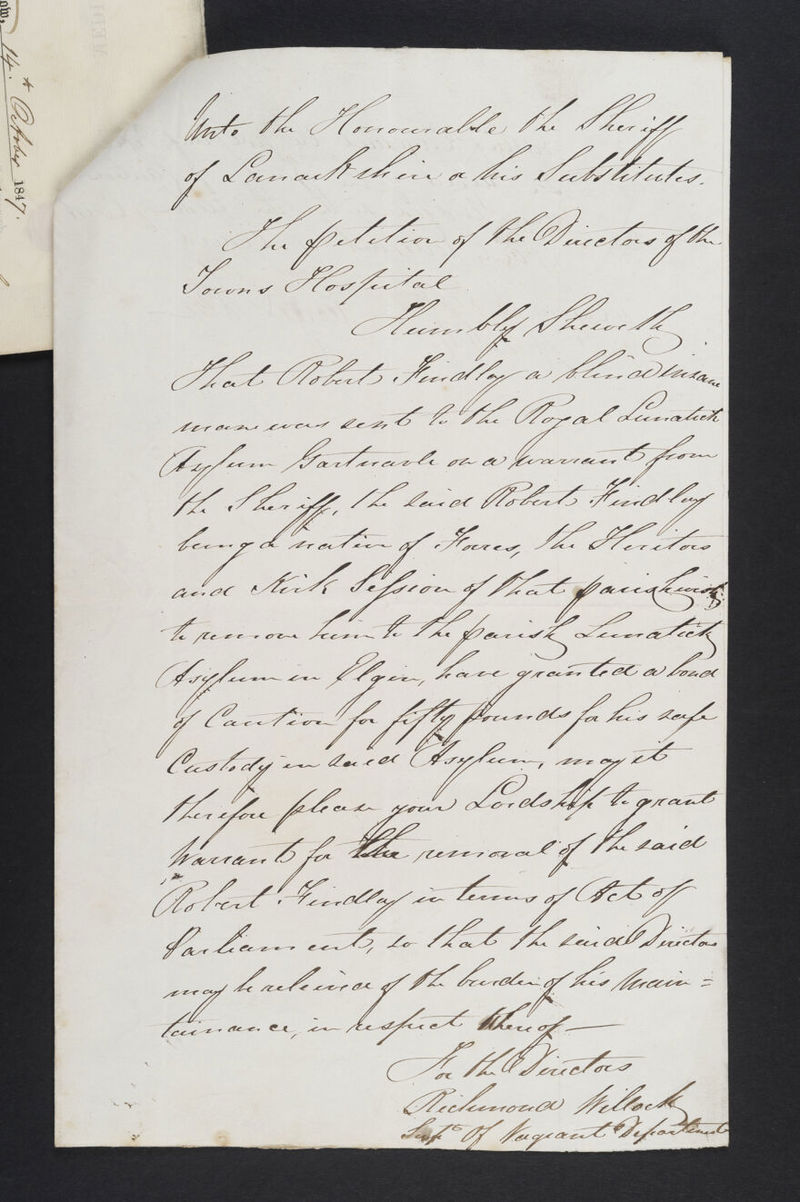 14th October 1847.
Unto the Honourable the Sheriff
of Lanarkshire or his Substitutes.
The petition of the Directors of the
Towns Hospital
Humbly Sheweth
That Robert Findlay a blind insane
man was sent to the Royal Lunatick
Asylum Gartnavle on a warrant from
the Sheriff, the said Robert Findlay
being a native of Forres, the Heritors
and Kirk Session of that parish
to remove him to the parish Lunatick
Asylum in Elgin, have granted a bond
of Caution for fifty pounds for his safe
Custody in said Asylum, may it
therefore please your Lordship to grant
Warrant for the removal of the said
Robert Findlay in terms of Act of
Parliament, so that the said Directors
may be releived of the burden of his Main=
tainance, in respect thereof —
For the Directors
Richmond Willock
Supt. Of Vagrant Department